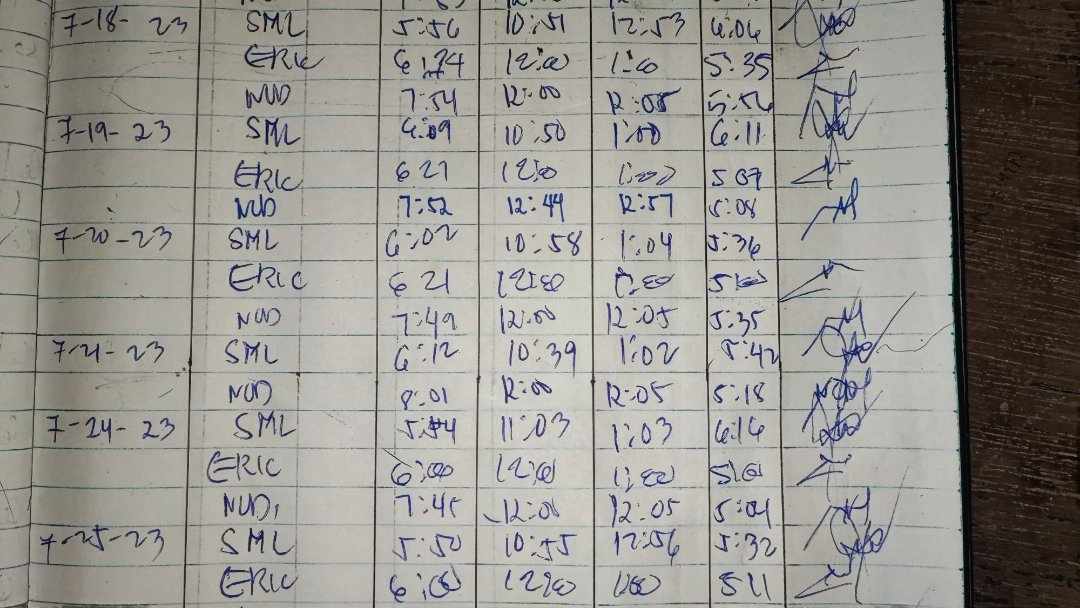 7-18-23 SML 5:56 10:51 12:53 6:06
ERIC 6:24 12:00 1:00 5:35
NUD 7:54 12:00 12:05 5:56
7-19-23 SML 6:09 10:50 1:00 6:11
ERIC 6 27 12:00 1:00 5 07
NUD 7:52 12:44 12:57 5:08
7-20-23 SML 6:02 10:58 1:04 5:36
ERIC 6 21 12:00 1:00 5
NUD 7:49 12:00 12:05 5:35
7-21-23 SML 6:12 10:39 1:02 5:42
NUD 8:01 12:00 12:05 5:18
7-24-23 SML 5:54 11:03 1:03 6:16
ERIC 6:00 12:00 1:00
NUD 7:45 12:00 12:05 5:04
7-25-23 SML 5:50 10:55 12:56 5:32
ERIC 6:00 12:00 1:00 5 11